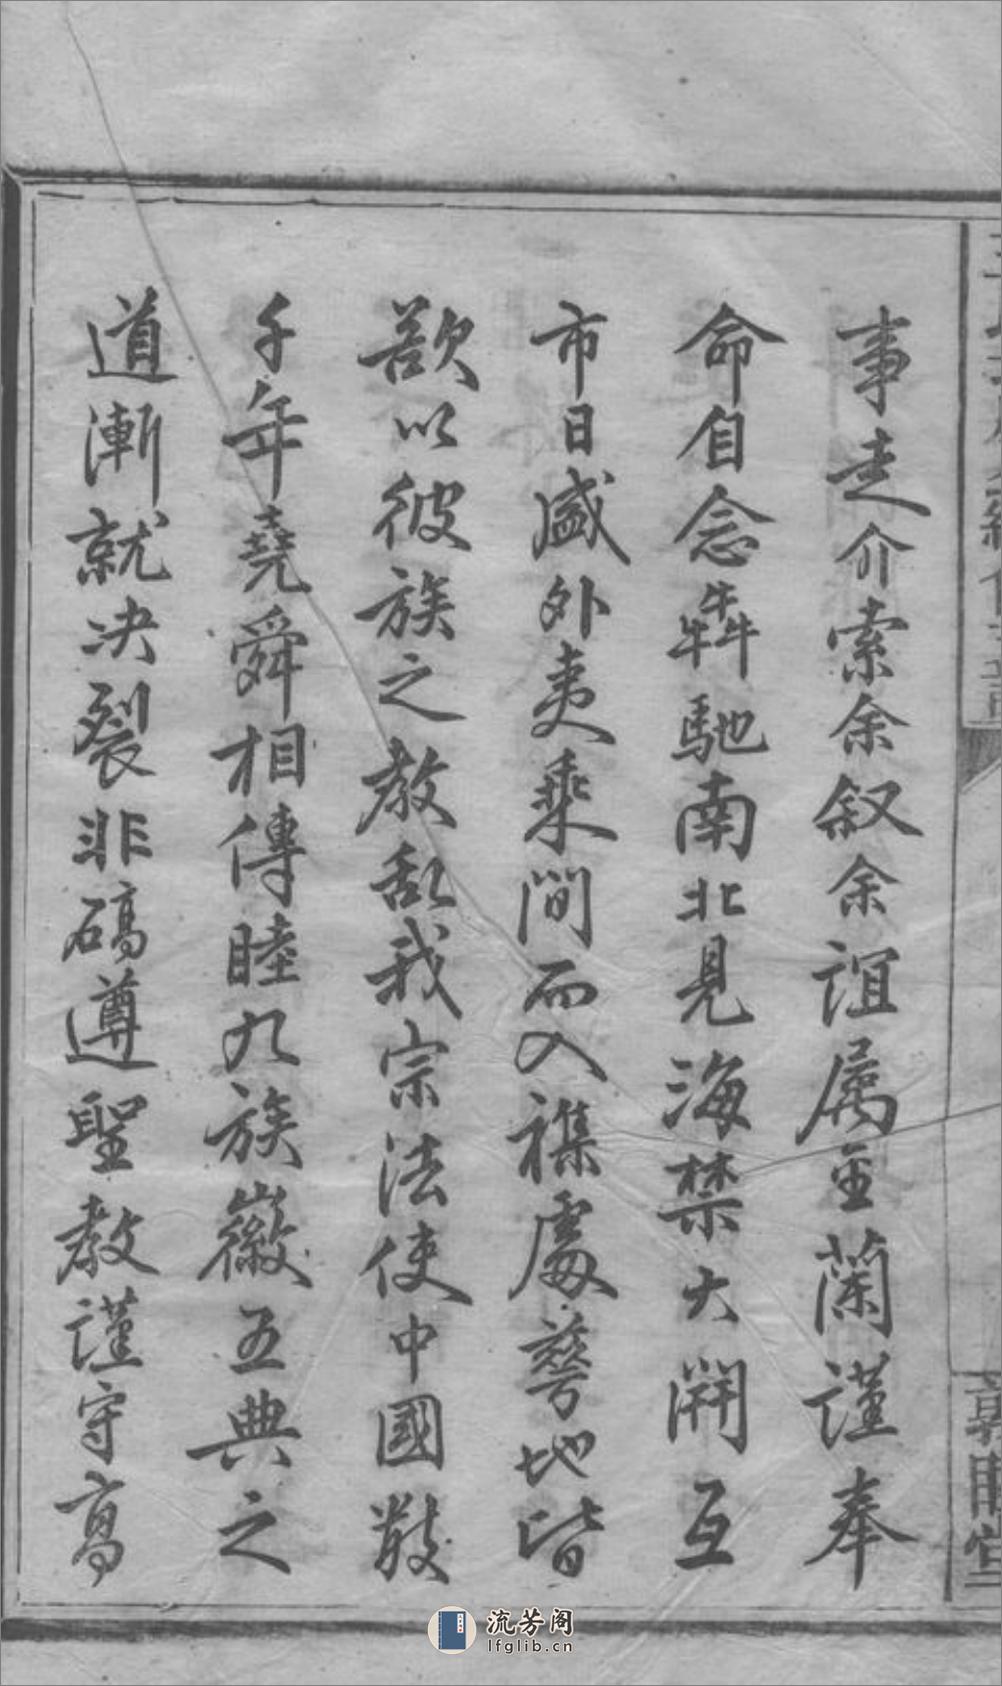 事走介索余叙余誼屬至蘭謹奉
命自念犇馳南北見海禁大開互
市日盛外夷乘間而入襍處轂地皆
欲以彼族之教亂我宗法使中國數
千年堯舜相傳睦九族徽五典之
道漸就決裂非碻遵聖教謹守高
敦睦堂
流芳阁
lfglib.cn